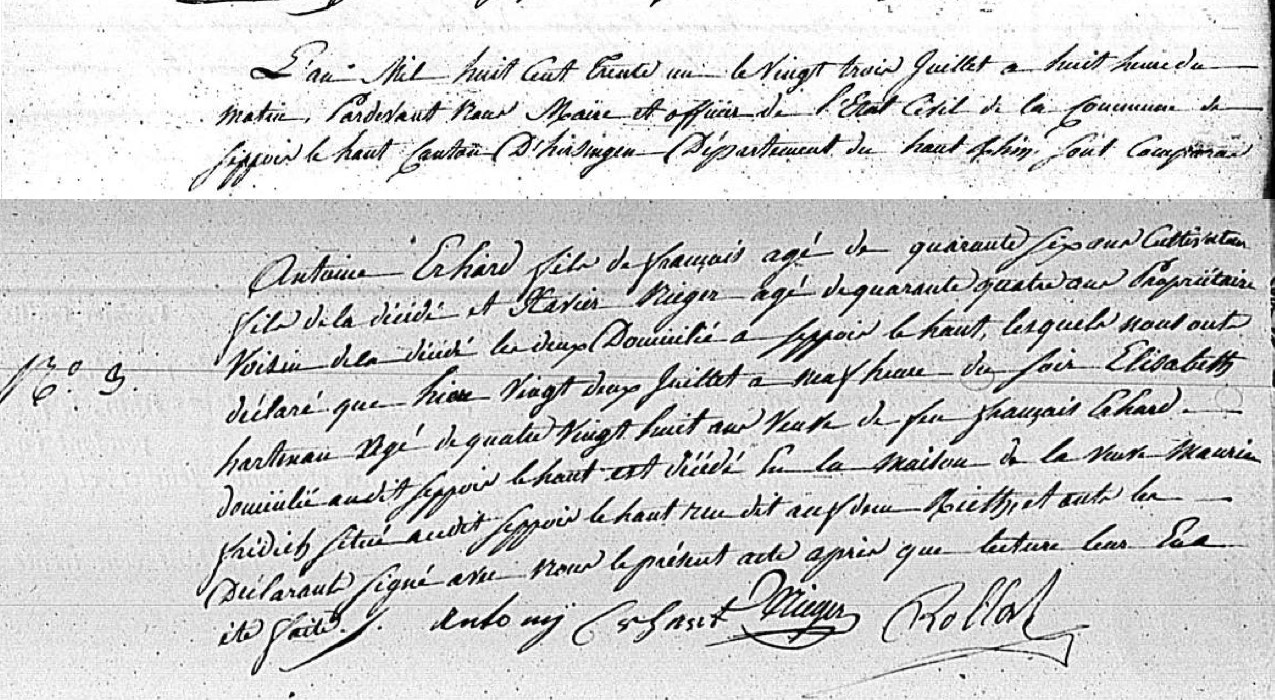 L'an Mil huit Cent trente un le Vingt trois Juillet a huit heure du
matin, Pardevant Nous Maire et officier de l'Etat Civil de la Commune de
Seppois le haut Canton D'hirsingen Département du haut Rhin, Sont Comparus
Antoine Erhard fils de français agé de quarante six ans Cultivateur
fils de la décédé et Xavier Rieger agé de quarante quatre ans Propriétaire
Voisin de la décédé les deux Domicilié a Seppois le haut, lesquels nous ont
N.o 3.
déclaré que hier Vingt deux Juillet a neuf heure du Soir Elisabeth
hartman Agé de quatre Vingt huit ans Veuve de feu français Erhard
domicilié audit Seppois le haut est décédé En la maison de la veuve Maurice
fridich Situé audit Seppois le haut rue dit auf dem Rieth, et ont les
Déclarant Signé avec nous le présent acte après que lecture leur En a
été faite.
Antony Erhart Rieger Rollat